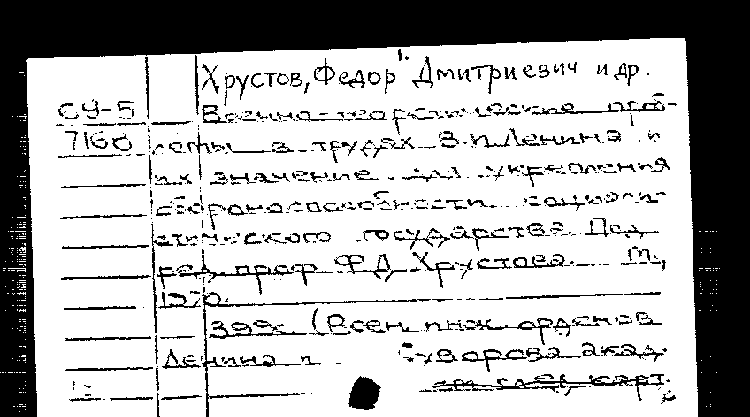 Хрустов, Федор Дмитриевич и др.
СУ-5 Военно-теоретические проб-
7160 лемы в трудах В.И.Ленина и
их значение для укрепления
обороноспособности социали-
стического государства. Под
ред. проф. Ф.Д. Хрустова. М.,
1970.
399с. (Воен. инж. орденов
Ленина и Суворова акад.